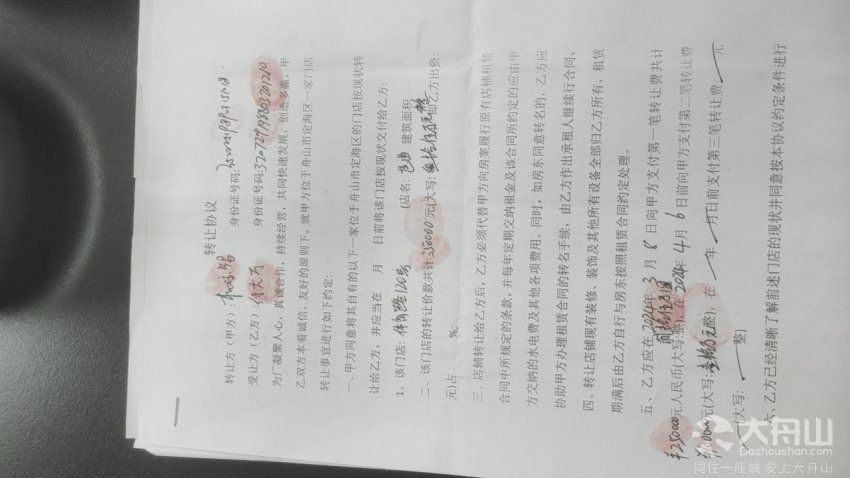 转让协议
转让方（甲方）： 身份证号码:
受让方（乙方）： 身份证号码:
为广凝聚人心，真诚合作，持续经营，共同快速发展，创造多赢，甲
乙双方本着诚信，友好的原则下，就甲方位于舟山市定海区一家门店
转让事宜进行如下约定:
一、甲方同意将其自有的以下一家位于舟山市定海区的门店按现状转
让给乙方，并应当在 月 日前将该门店按现状交付给乙方:
1、该门店: (店名: 建筑面积
二、该门店的转让价款共计 350000 元(大写: 即乙方出资:
元)占 %;
三、店铺转让给乙方后，乙方必须代替甲方向房案履行原有店铺租赁
合同中所规定的条款，并每年定期交纳租金及该合同所约定的应由甲
方交纳的水电费及其他各项费用。同时，如房东同意转名的，乙方应
协助甲方办理租赁合同的转名手续，由乙方作出承租人继续行合同。
四、转让店铺现有装修、装饰及其他所有设备全部归乙方所有，租赁
期满后由乙方自行与房东按照租赁合同约定处理。
五、乙方应在 2024年 3 月 8 日向甲方支付第一笔转让费共计
250000元人民币(大写: 整)，在 2024年 4 月 6 日前向甲方支付第二笔转让费
100000元(大写: 整)，在 年 月日前支付第三笔转让费 元
(大写: 整)
六、乙方已经清晰了解前述门店的现状并同意按本协议约定条件进行
大舟山
Dazhoushan.com
同在一座城.爱上大舟山